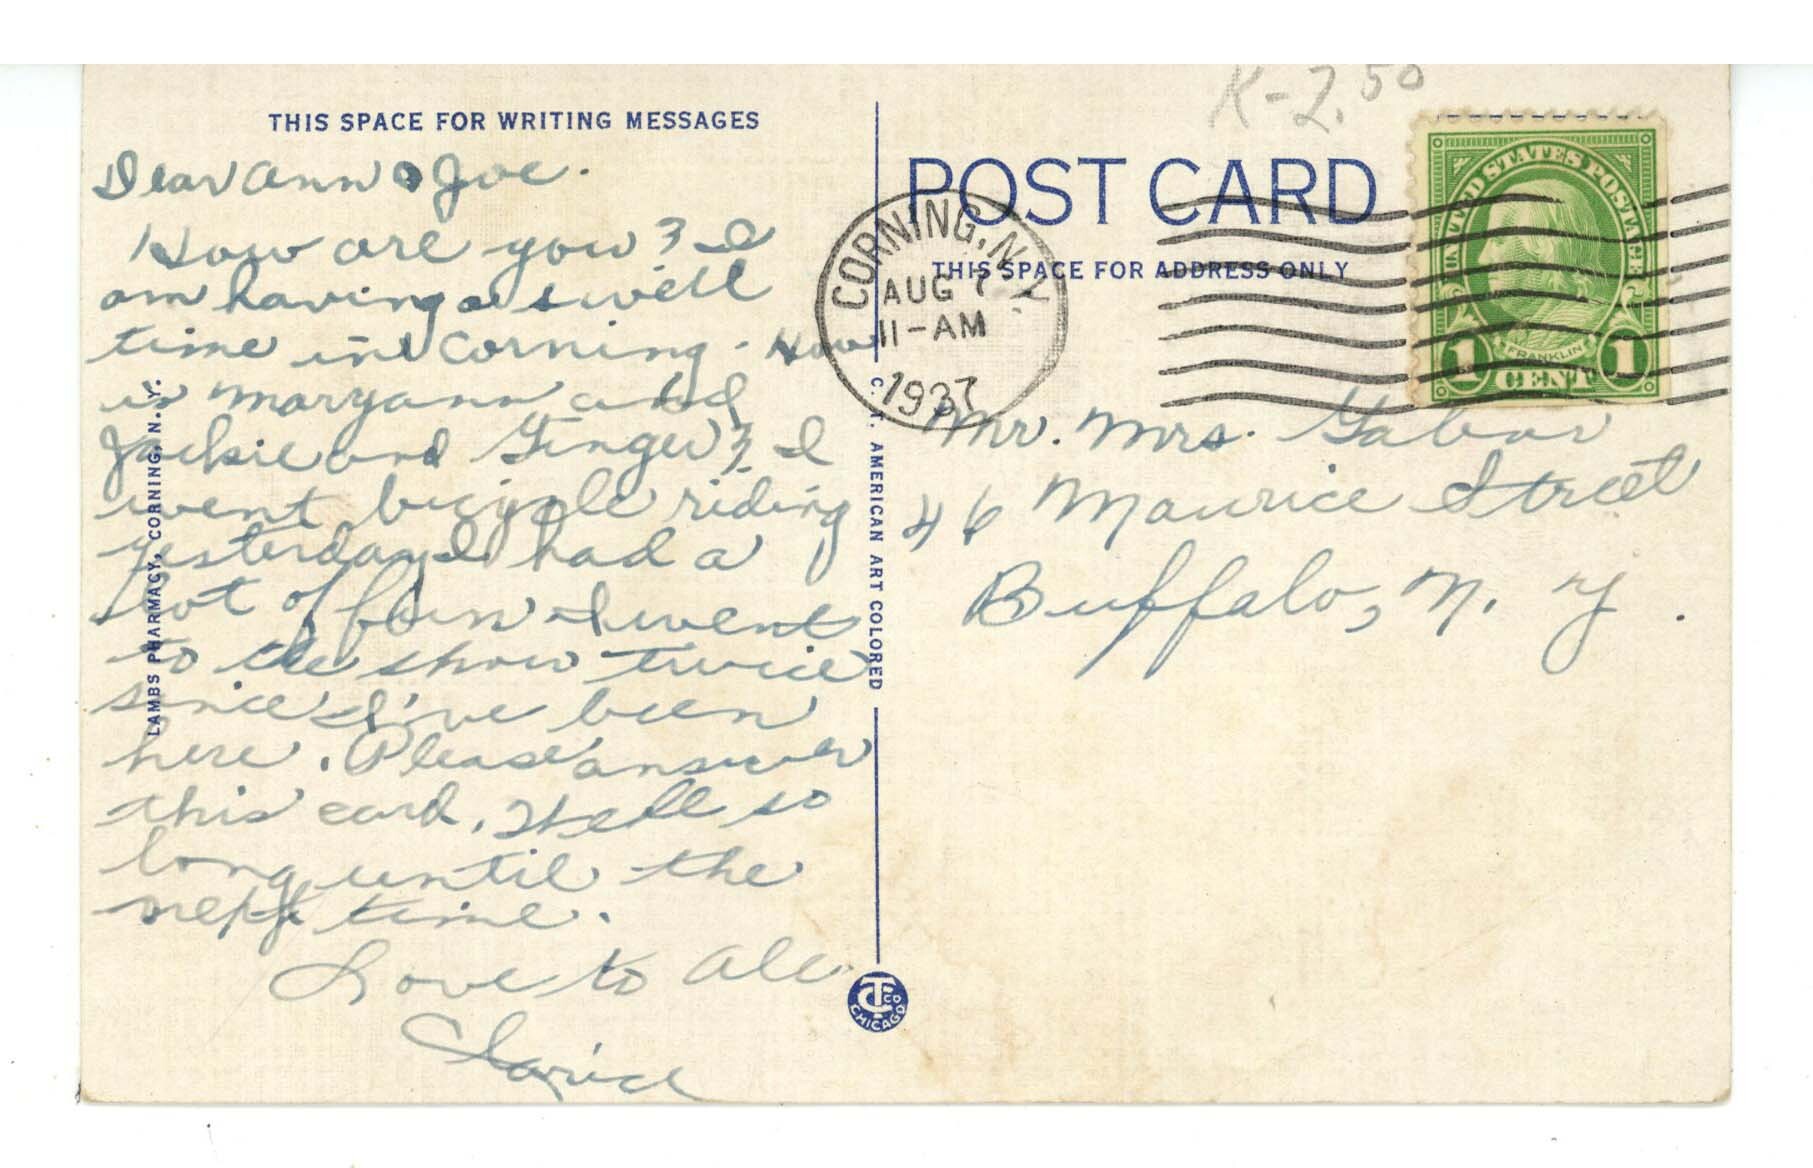 K-2.50
THIS SPACE FOR WRITING MESSAGES
Dear Ann & Joe.
How are you? I
am having a swell
time in Corning. How
is Maryann and
Jackie and Ginger? I
went bicycle riding
yesterday I had a
lot of fun I went
to the show twice
since I've been
here. Please answer
this card. Well so
long until the
next time.
Love to All
Clarice
LAMBS PHARMACY, CORNING, N. Y.
C. T. AMERICAN ART COLORED
CTCO
CHICAGO
POST CARD
THIS SPACE FOR ADDRESS ONLY
CORNING, N.Y.
AUG 7
11-AM
1937
UNITED STATES POSTAGE
FRANKLIN
1 CENT 1
Mr. Mrs. Gabor
46 Maurice Street
Buffalo, N. Y.